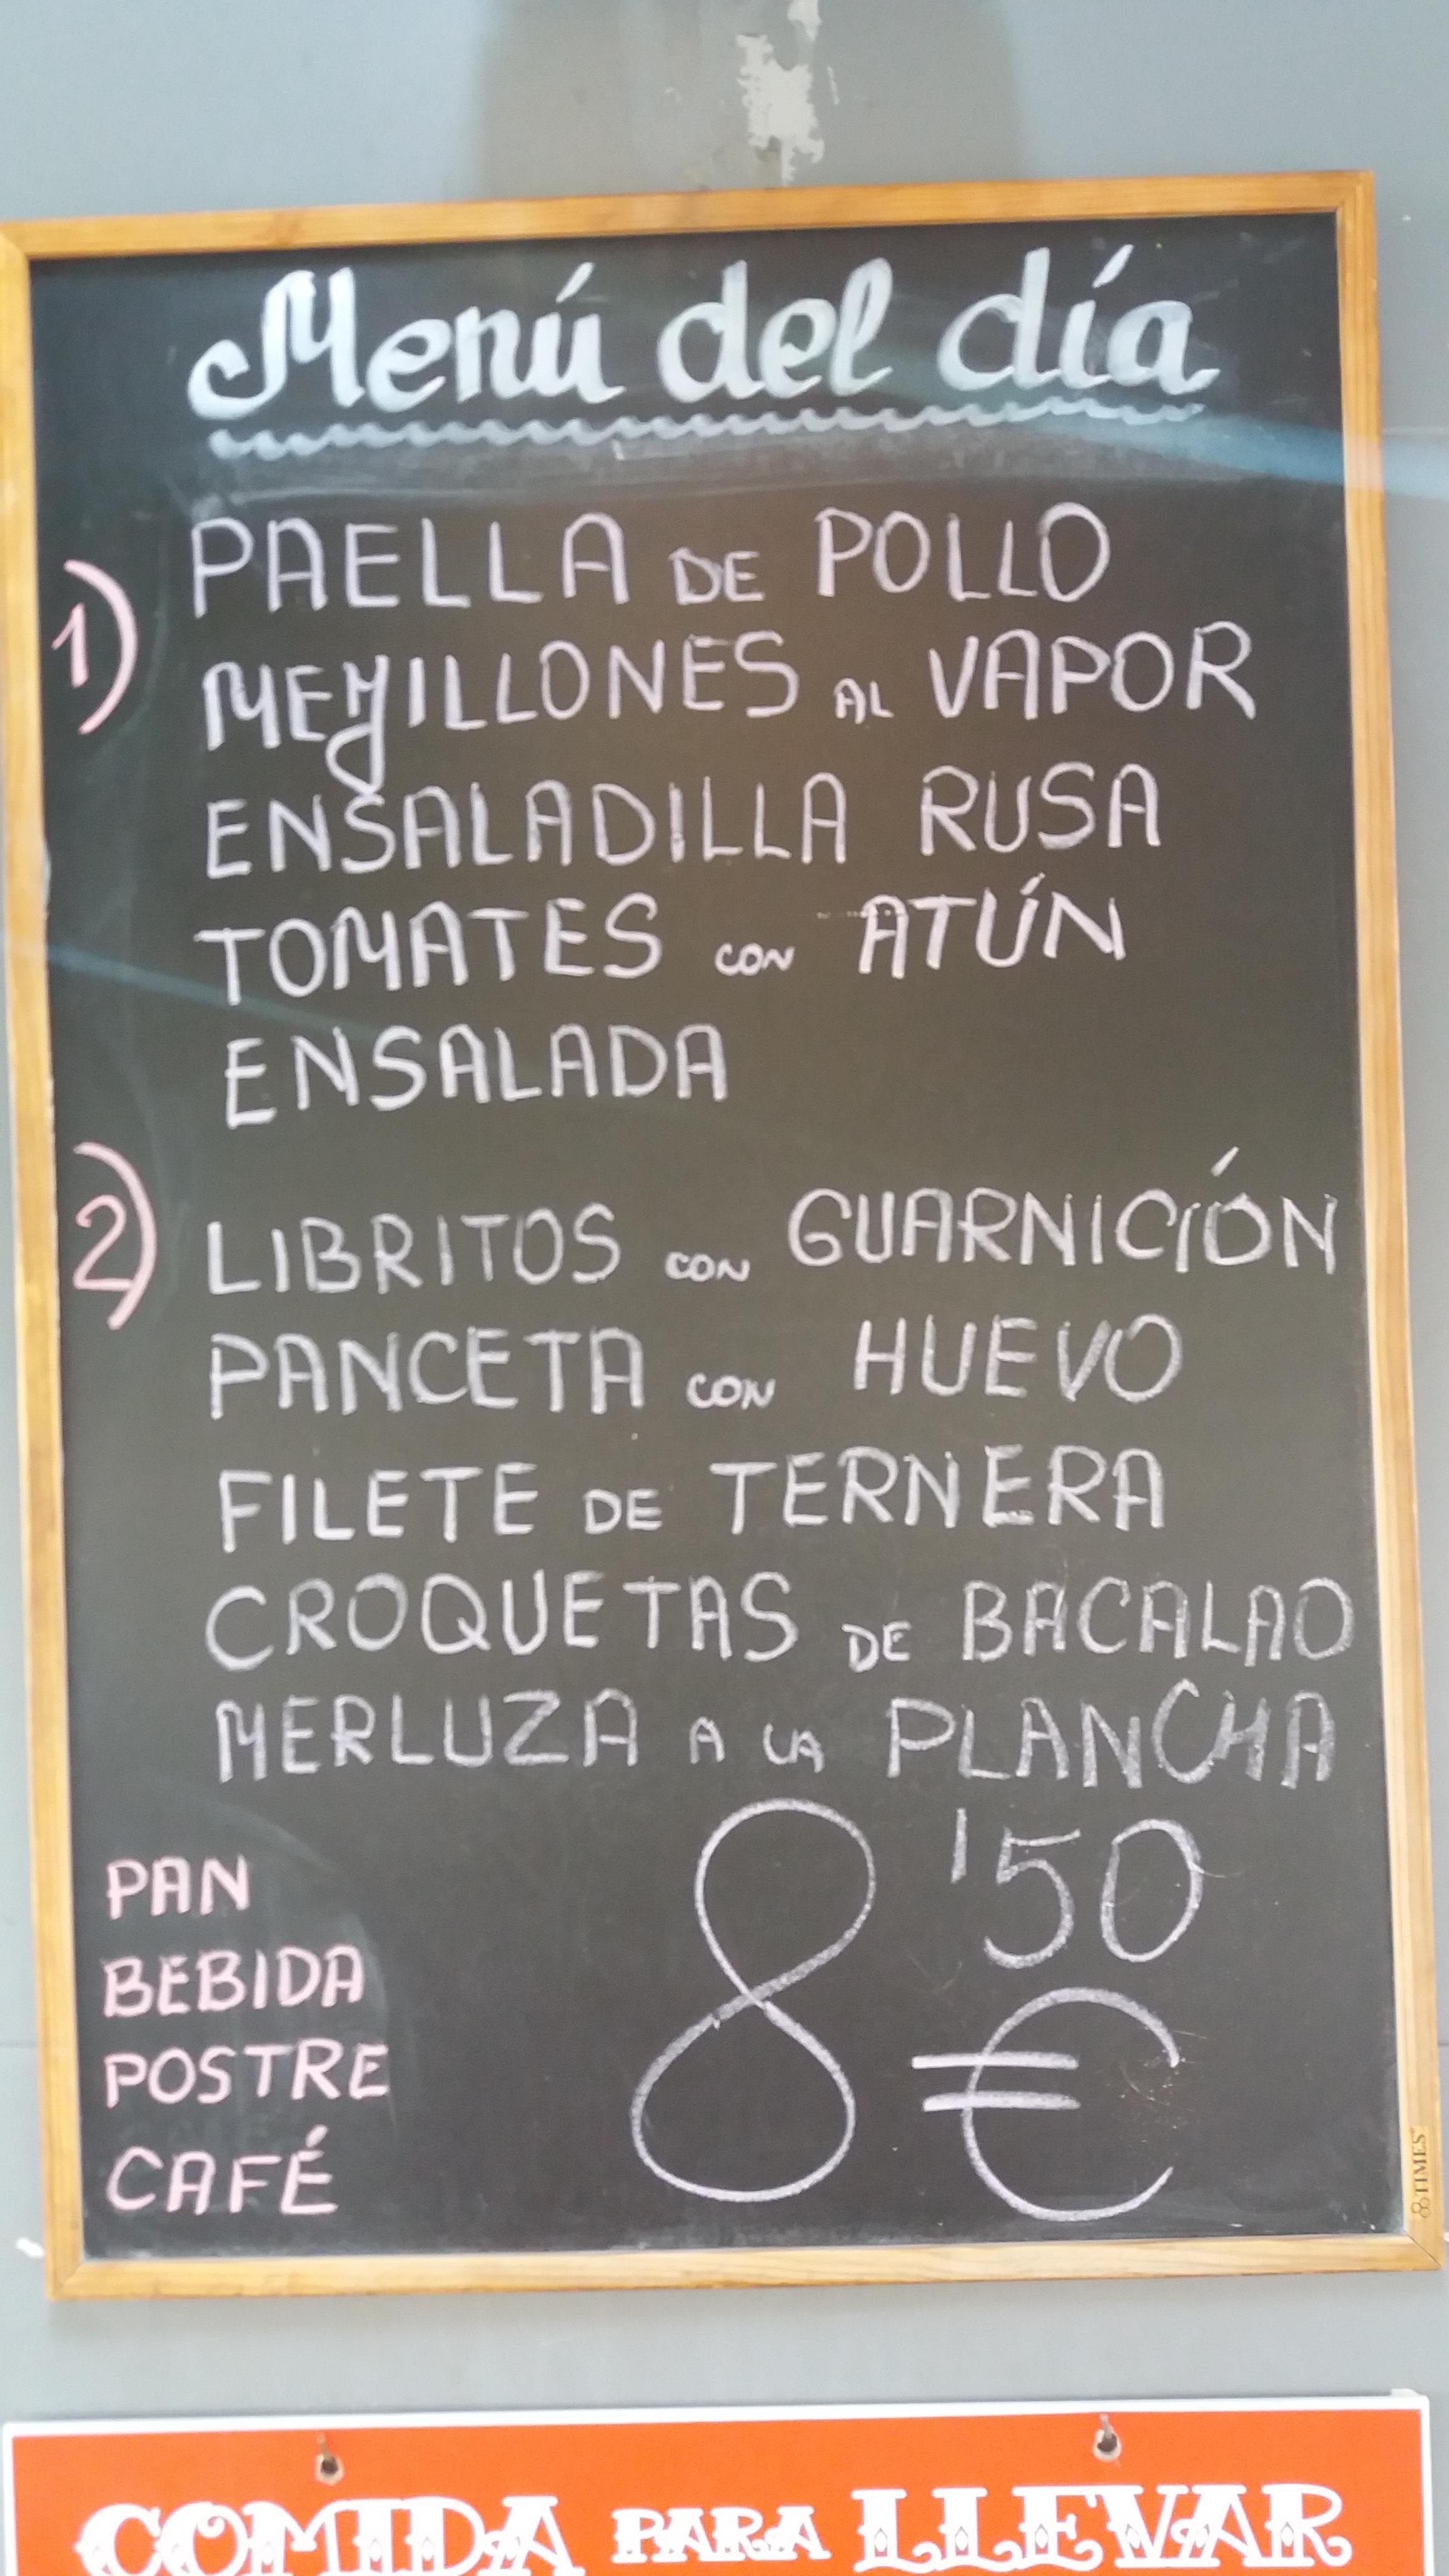 Menú del día
1) PAELLA DE POLLO
MEJILLONES AL VAPOR
ENSALADILLA RUSA
TOMATES CON ATÚN
ENSALADA
2) LIBRITOS CON GUARNICIÓN
PANCETA CON HUEVO
FILETE DE TERNERA
CROQUETAS DE BACALAO
MERLUZA A LA PLANCHA
PAN
BEBIDA
POSTRE
CAFÉ
8'50 €
TIMES
COMIDA PARA LLEVAR